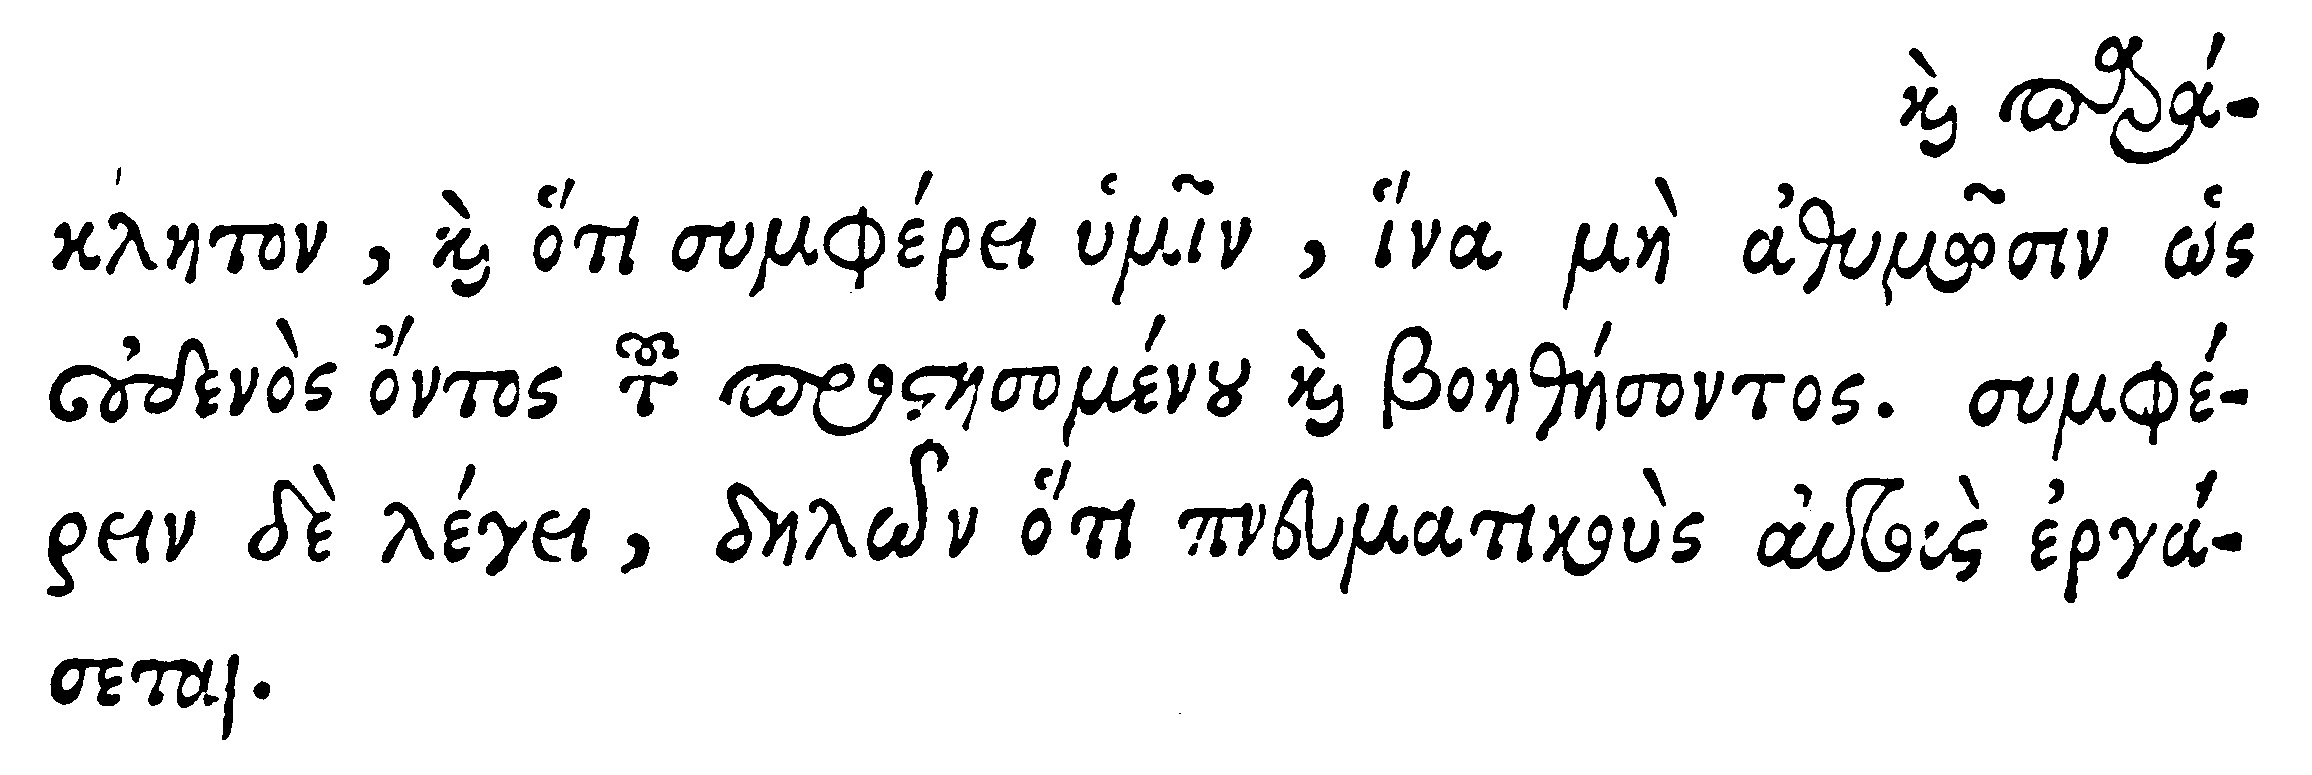 καὶ παρά-
κλητον, καὶ ὅτι συμφέρει ὑμῖν, ἵνα μὴ ἀθυμῶσιν ὡς
οὐδενὸς ὄντος τοῦ προστησομένου καὶ βοηθήσοντος. συμφέ-
ρειν δὲ λέγει, δηλῶν ὅτι πνευματικοὺς αὐτοὺς ἐργά-
σεται.